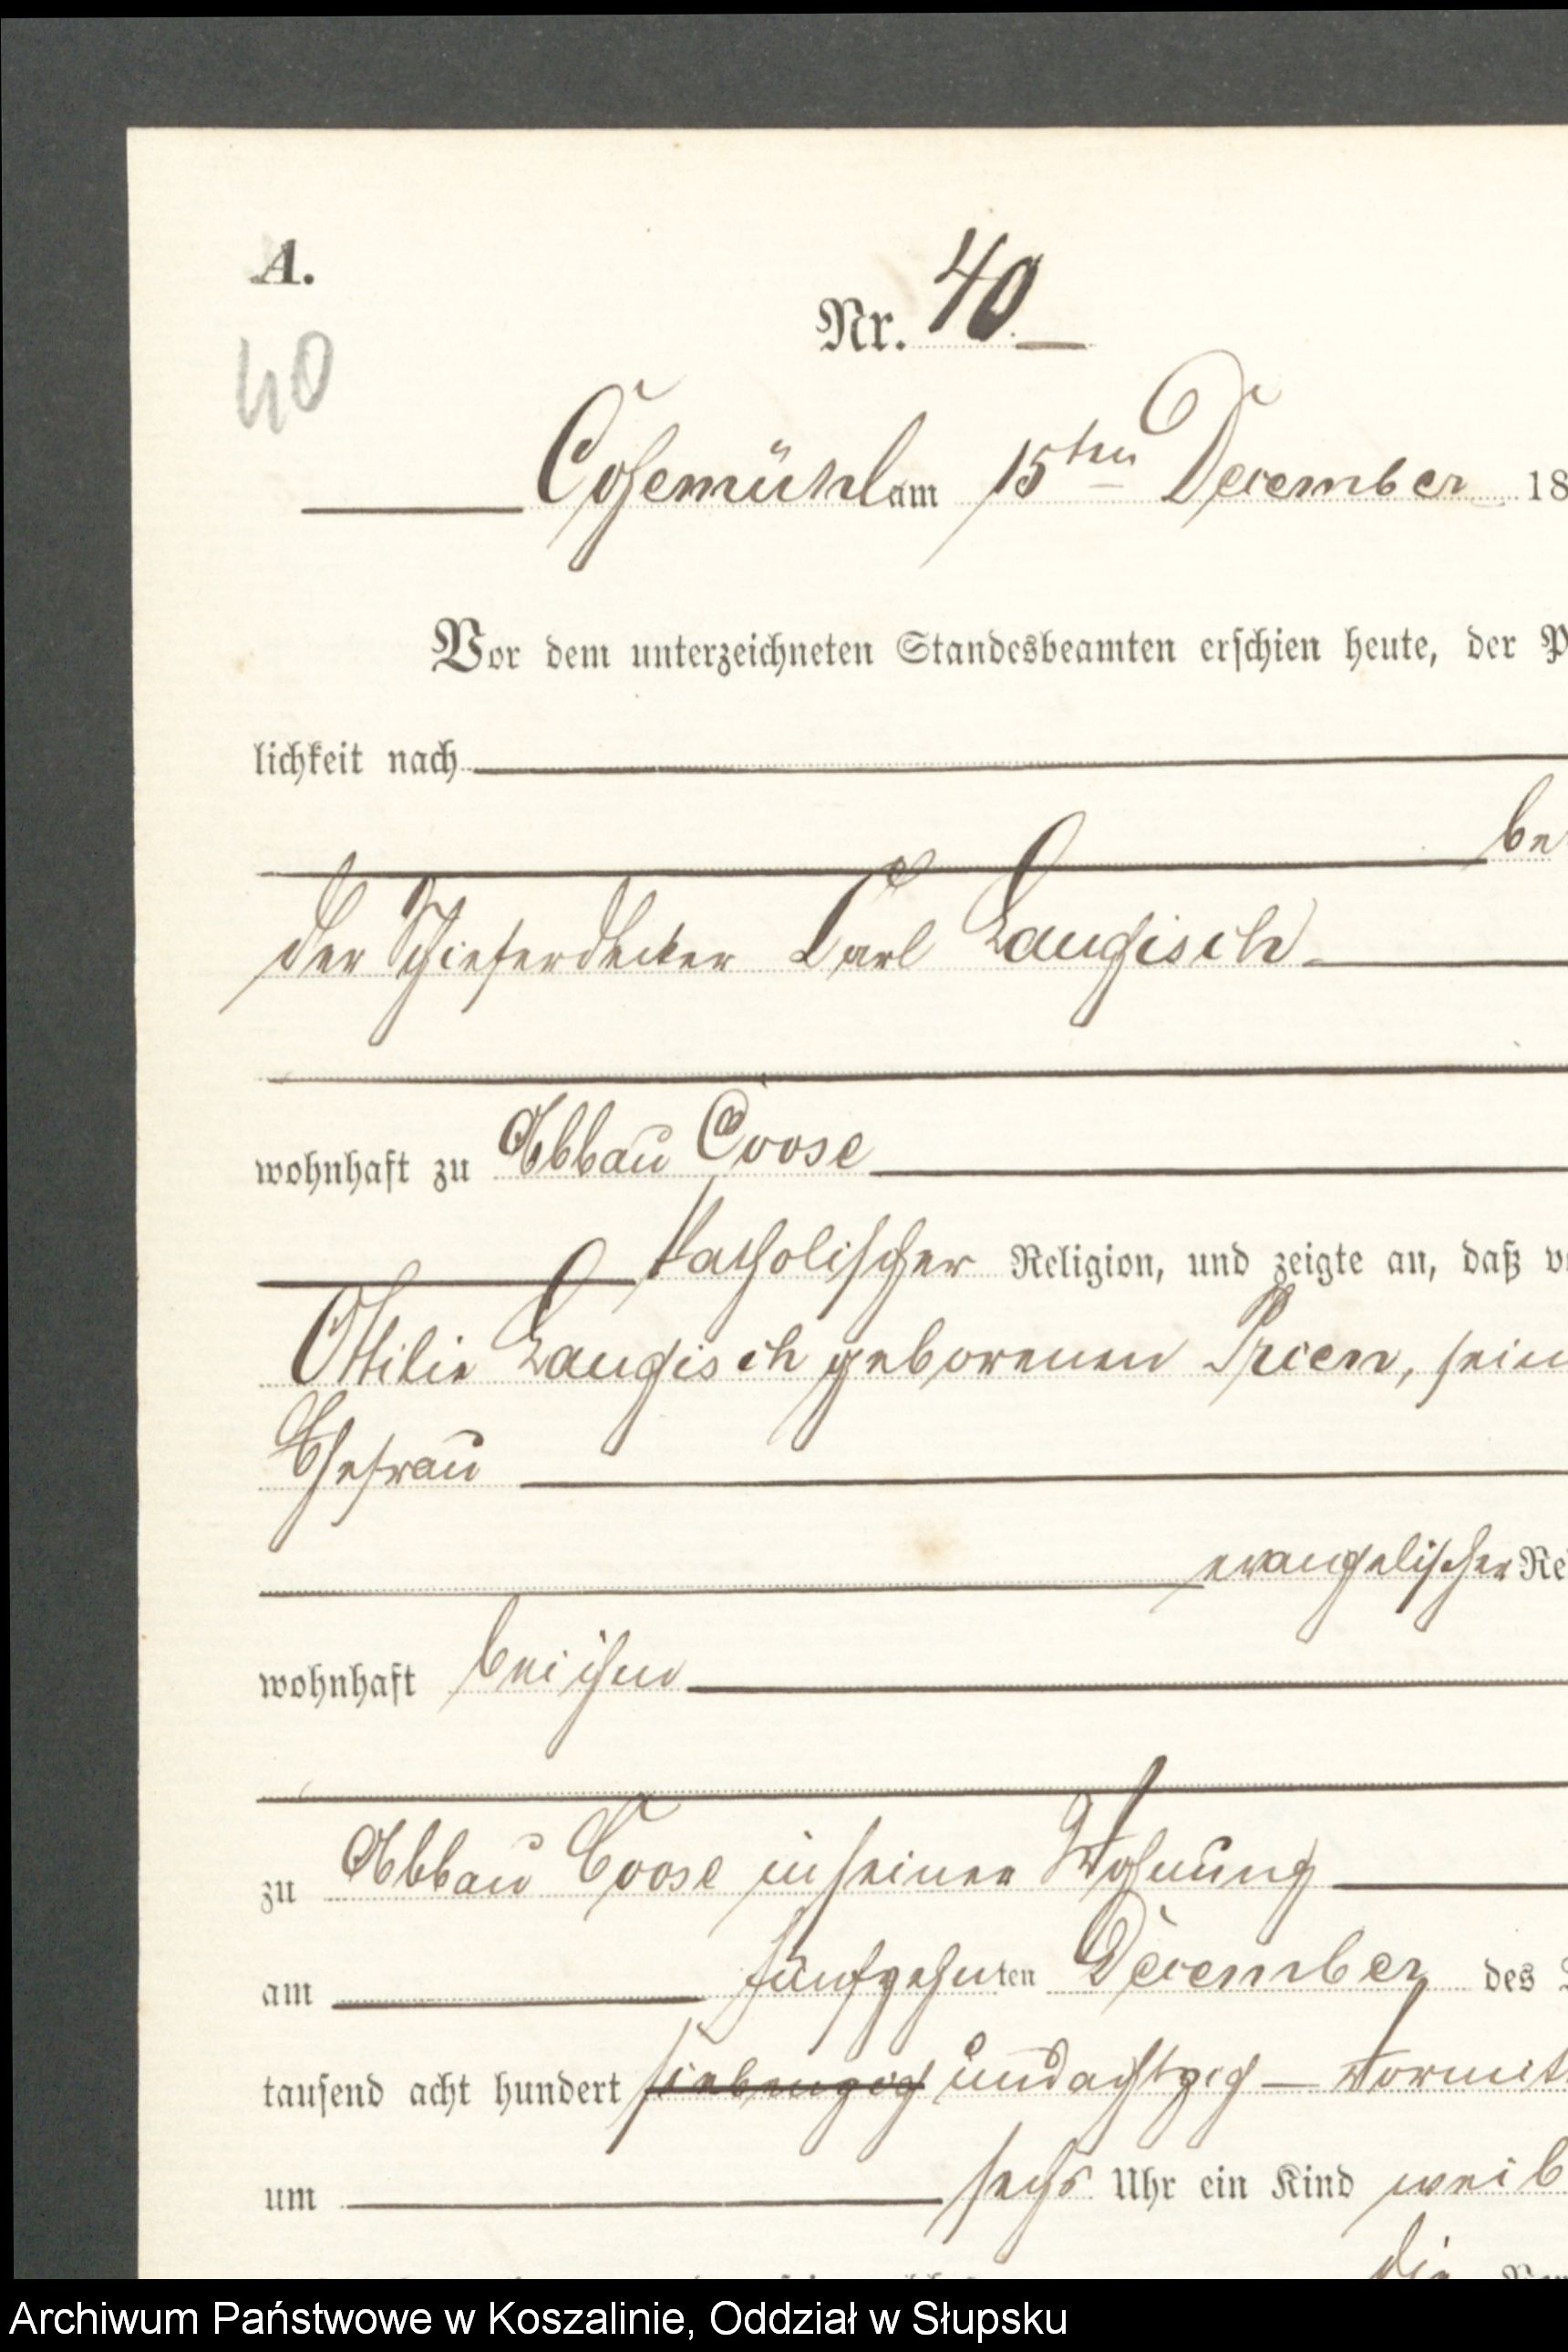 A.
40
Nr. 40
Cosemühl am 15ten December 18
Vor dem unterzeichneten Standesbeamten erschien heute, der P
lichkeit nach
be
der Schieferdecker Carl Langisch
wohnhaft zu Abbau Coose
katholischer Religion, und zeigte an, daß v
Ottilie Langisch geborenen Prien, sein
Ehefrau
evangelischer Re
wohnhaft bei ihm
zu Abbau Coose in seiner Wohnung
am fünfzehnten December des
tausend acht hundert siebenzig undachtzig – Vormit
um sechs Uhr ein Kind weib
die
Archiwum Państwowe w Koszalinie, Oddział w Słupsku